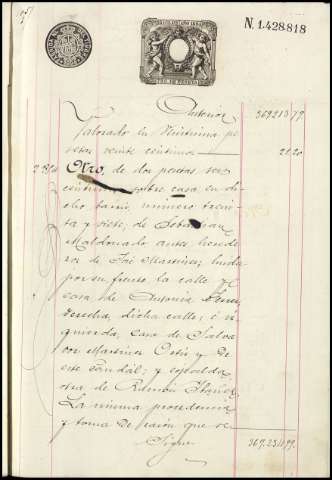 N. 1.428.818
Anterior 369213,79
Valorado en veintiuna pe
setas veinte centimos 21,20
Otro, de dos pesetas
centimos, sobre casa en di
cho barrio, numero trein
ta y siete, de Sebastian
Maldonado antes herede
ros de José Martinez; linda
por su frente la calle
casa de Antonia
derecha, dicha calle; é iz
quierda, casa de Salva
dor Martinez Ortiz y de
este caudal; y espalda
otra de Ramon Ibañez.
La misma procedencia
y toma de razon que se
Sigue 369.234,99